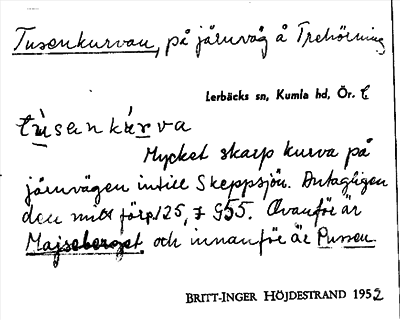 Tusenkurvan, på järnväg å Trehörning
Lerbäcks sn, Kumla hd, Ör. l
tùsenkúrva
Mycket skarp kurva på
järnvägen intill Skeppsjön. Antagligen
den mitt för 125, 7 G55. Ovanför är
Majseberget och innanför är Pussen.
BRITT-INGER HÖJDESTRAND 1952